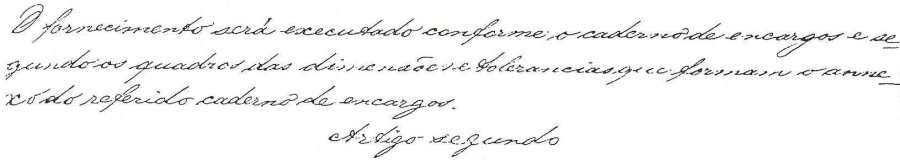 O fornecimento será executado conforme o caderno de encargos e se-
gundo os quadros das dimensões e tolerancias que formam o anne-
xo do referido caderno de encargos.
Artigo segundo